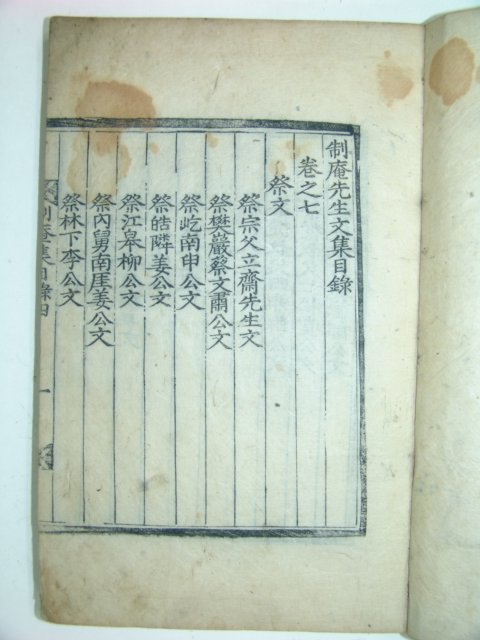 制庵先生文集目錄
卷之七
祭文
祭宗父立齋先生文
祭樊巖蔡文肅公文
祭屹南申公文
祭皓隣姜公文
祭江皋柳公文
祭內舅南厓姜公文
祭林下李公文
制庵集目錄四
一